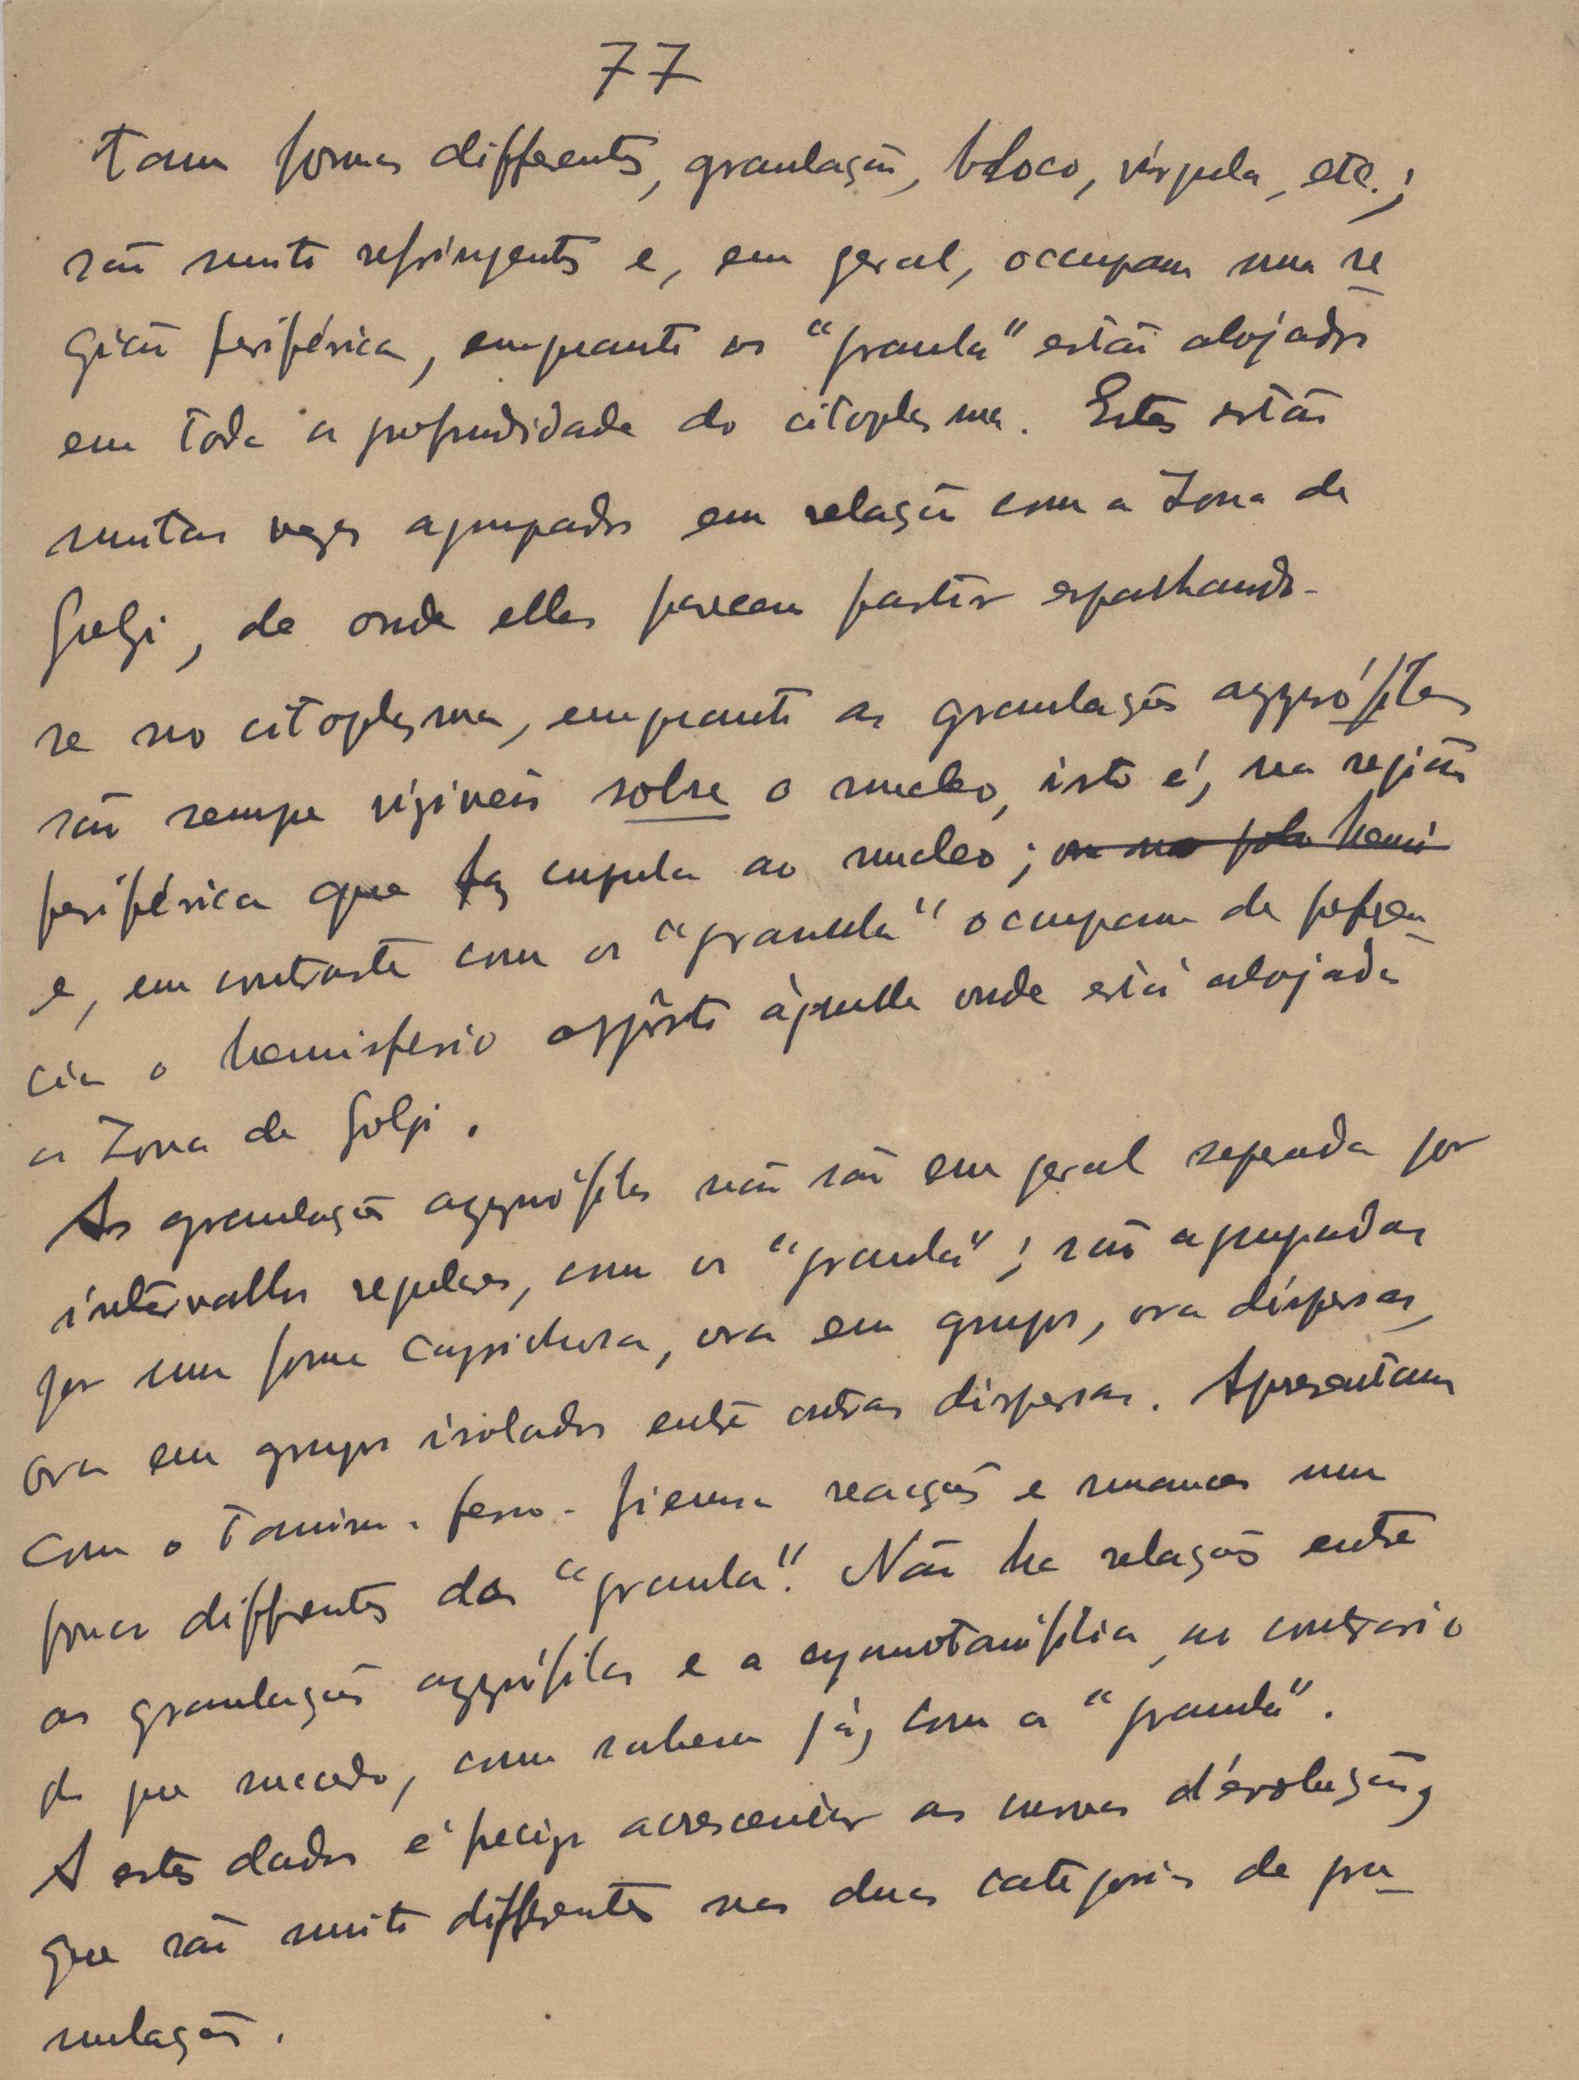 77
tam formas differentes, granulação, bloco, vírgula, etc.;
são muito refringentes e, em geral, occupam uma re
gião periférica, emquanto os "granula" estão alojados
em toda a profundidade do citoplasma. Estes estão
muitas vezes agrupados em relação com a zona de
Golgi, de onde elles parecem partir espalhando-
se no citoplasma, emquanto as granulações azzurófilas
são sempre visiveis sobre o nucleo, isto é, na região
periférica que faz cupula ao nucleo; ou no polo hemi
e, em contraste com os "granula" occupam de preferen
cia o hemisferio opposto àquelle onde está alojada
a zona de Golgi.
As granulações azzurófilas não são em geral separadas por
intervallos regulares, como os "granula"; são agrupadas
por uma forma caprichosa, ora em grupos, ora dispersas,
ora em grupos isolados entre outras dispersas. Apresentam
com o tanino-ferro- reacções e nuances um
pouco differentes dos "granula". Não ha relações entre
as granulações azzurófilas e a cyanotanofilia, ao contrario
do que succede, como sabem já, com a "granula".
A estes dados é preciso acrescentar as curvas d'évolução,
que são muito differentes nas duas categorias de gra
nulações.